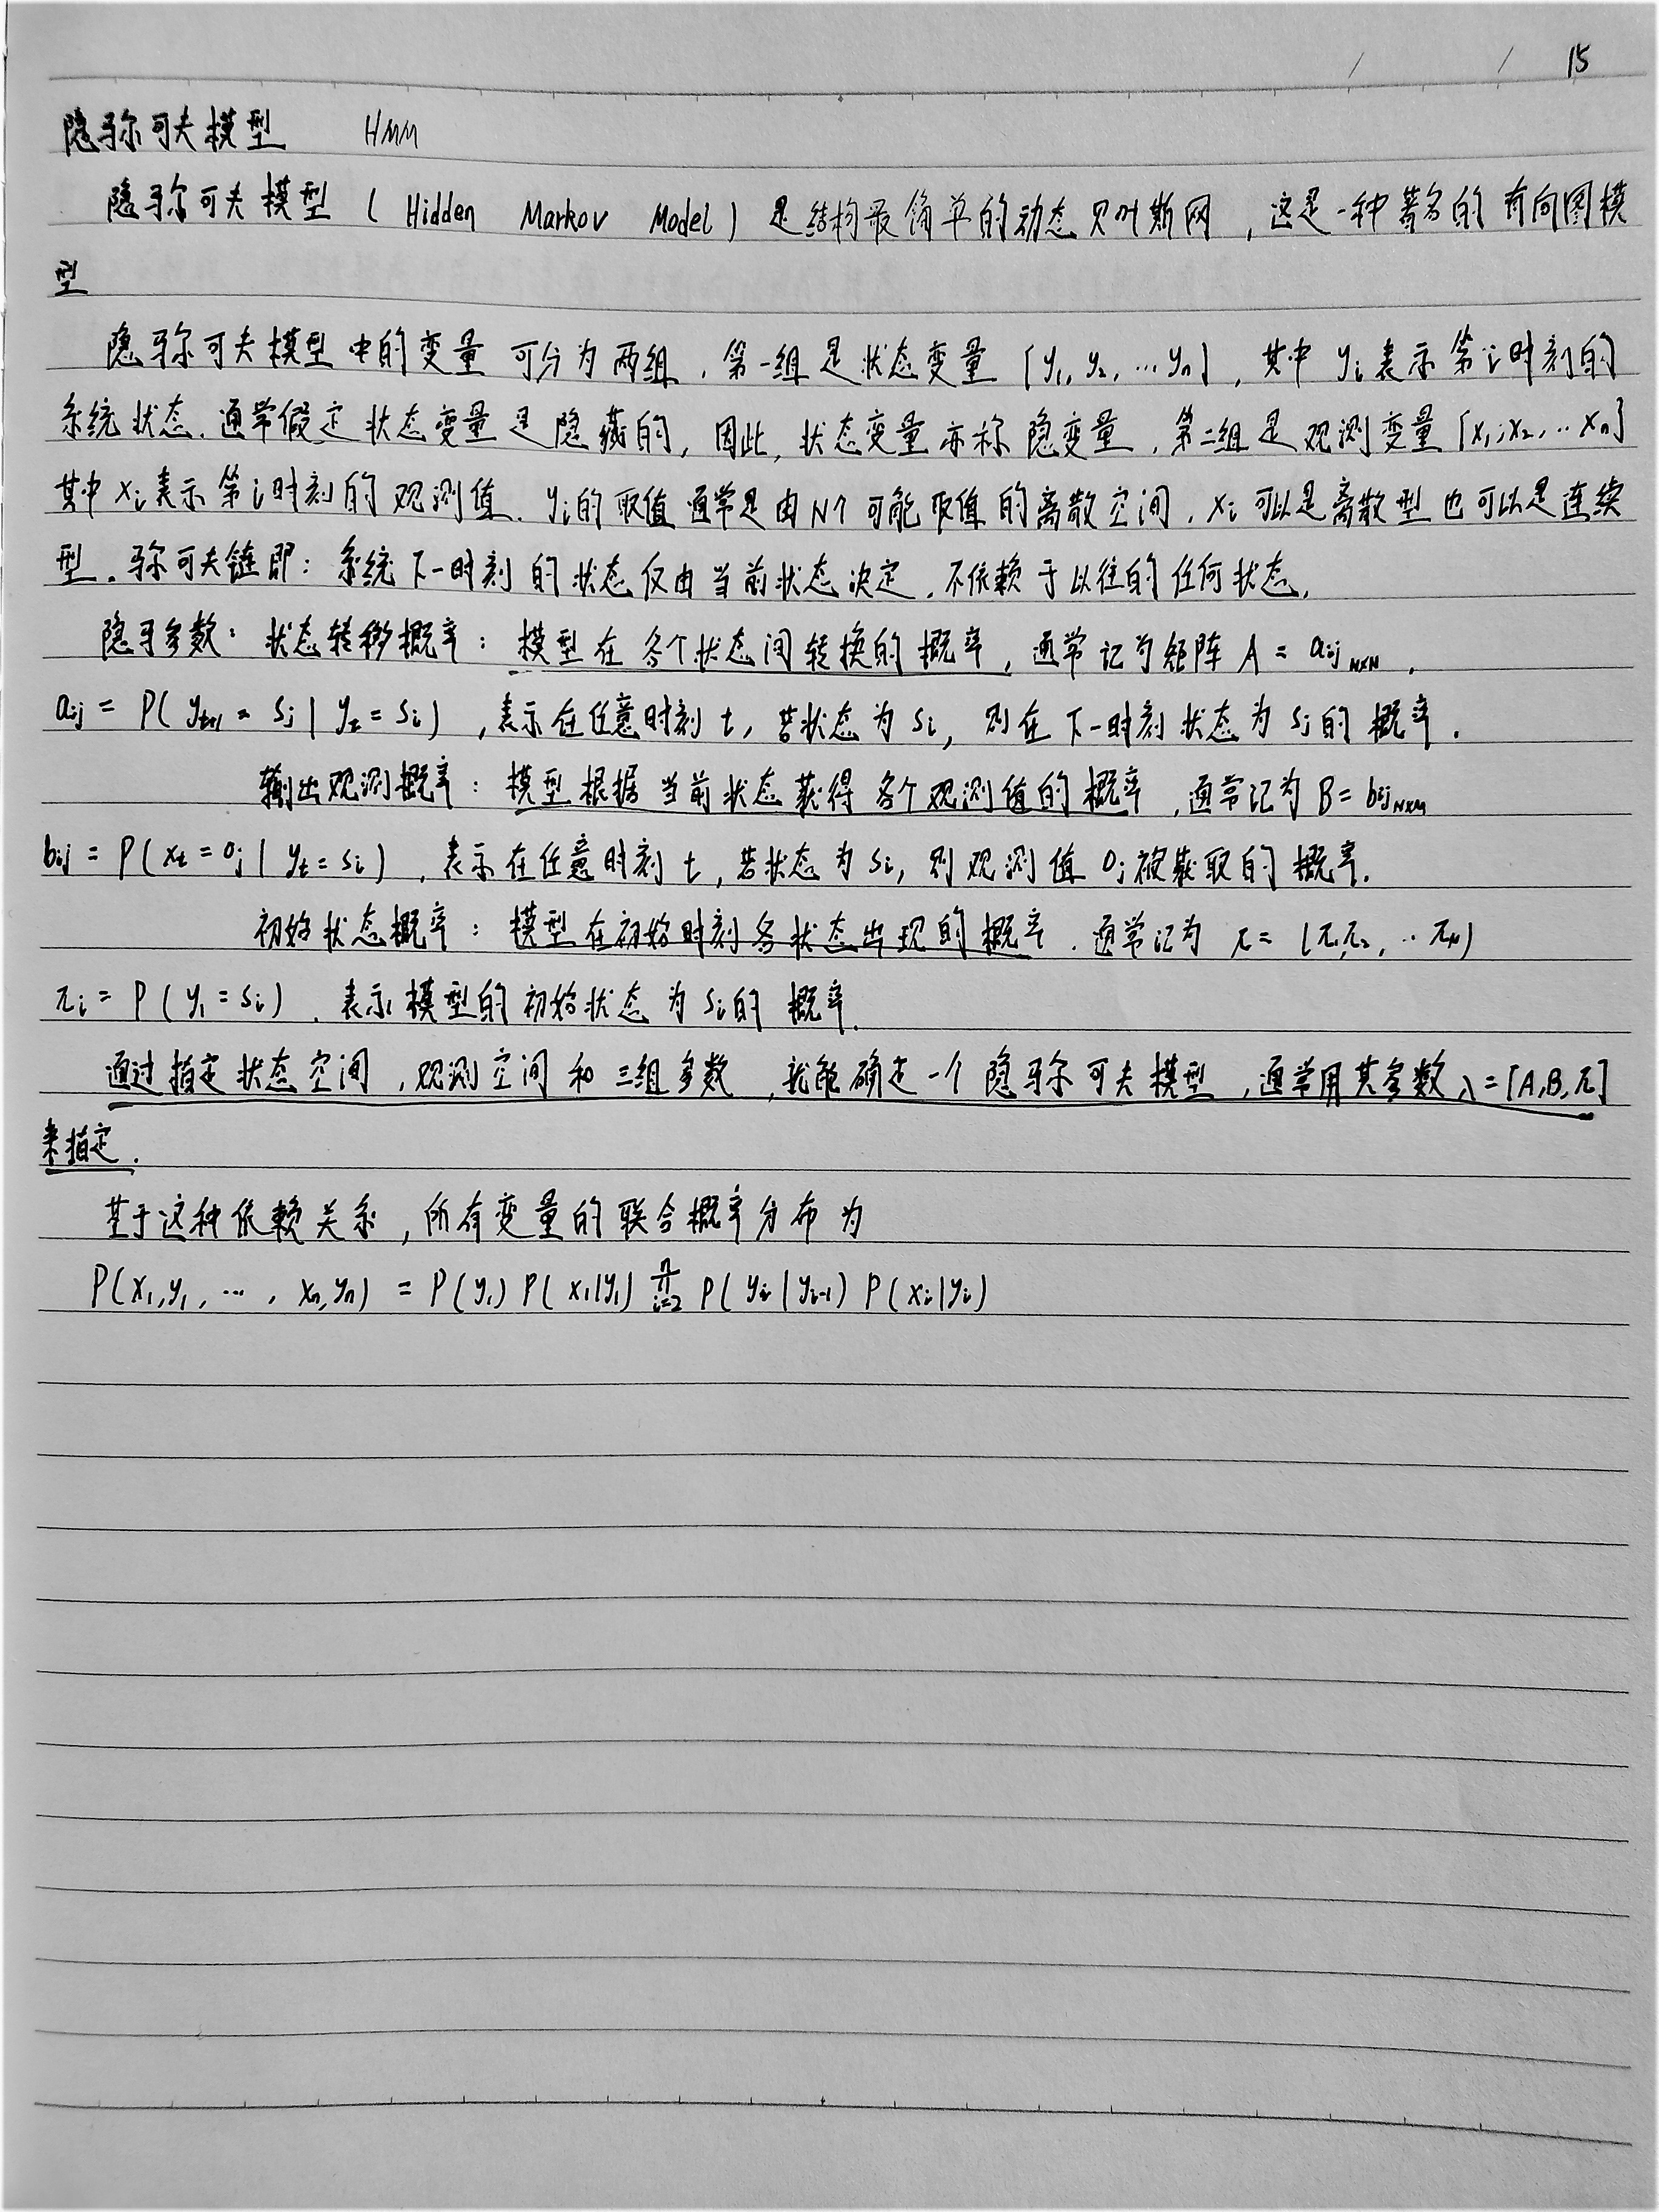 15
隐马尔可夫模型 HMM
隐马尔可夫模型 ( Hidden Markov Model ) 是结构最简单的动态贝叶斯网，这是一种著名的有向图模
型
隐马尔可夫模型中的变量可分为两组，第一组是状态变量 [y₁, y₂, … yₙ]，其中 yᵢ 表示第 i 时刻的
系统状态，通常假定状态变量是隐藏的，因此，状态变量亦称隐变量，第二组是观测变量 [x₁, x₂, … xₙ]
其中 xᵢ 表示第 i 时刻的观测值，yᵢ 的取值通常是由 N个可能取值的离散空间，xᵢ 可以是离散型也可以是连续
型．马尔可夫链即：系统下一时刻的状态仅由当前状态决定，不依赖于以往的任何状态，
隐马参数：状态转移概率：模型在各个状态间转换的概率，通常记为矩阵 A = aᵢⱼ N×N ，
aᵢⱼ = P( yₜ₊₁ = sⱼ | yₜ = sᵢ ) ，表示在任意时刻 t，若状态为 sᵢ，则在下一时刻状态为 sⱼ 的概率．
输出观测概率：模型根据当前状态获得各个观测值的概率，通常记为 B = bᵢⱼ N×M
bᵢⱼ = P( xₜ = oⱼ | yₜ = sᵢ ) ，表示在任意时刻 t，若状态为 sᵢ，则观测值 oⱼ 被获取的概率．
初始状态概率：模型在初始时刻各状态出现的概率．通常记为 π = (π₁,π₂, ‥ πN)
πᵢ = P ( y₁ = sᵢ ) ．表示模型的初始状态为 sᵢ 的概率．
通过指定状态空间，观测空间和三组参数，就能确定一个隐马尔可夫模型，通常用其参数 λ = [A,B,π]
来指定．
基于这种依赖关系，所有变量的联合概率分布为
P(x₁,y₁, …, xₙ,yₙ) = P(y₁) P(x₁|y₁) ∏ⁿᵢ₌₂ P( yᵢ | yᵢ₋₁) P(xᵢ|yᵢ)